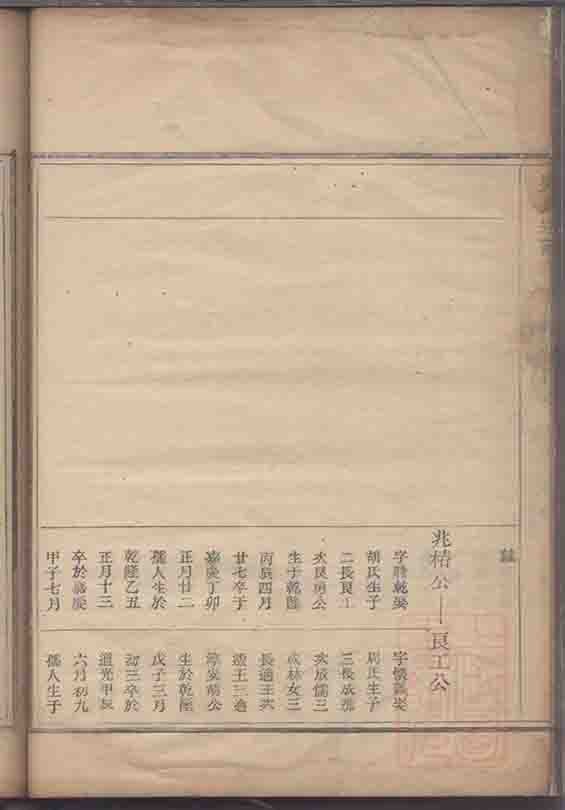 兆桔公—良工公
字 乾娶
胡氏生子
二長良工
次良 公
生于乾隆
丙辰四月
廿七卒于
嘉慶丁卯
正月廿二
孺人生於
乾隆乙丑
正月十三
卒於嘉慶
甲子七月
字懷 娶
周氏生子
三長成
次成儒三
成林女三
長適王次
適王三適
公
生於乾隆
戊子三月
初三卒於
道光甲辰
六月初九
孺人生于